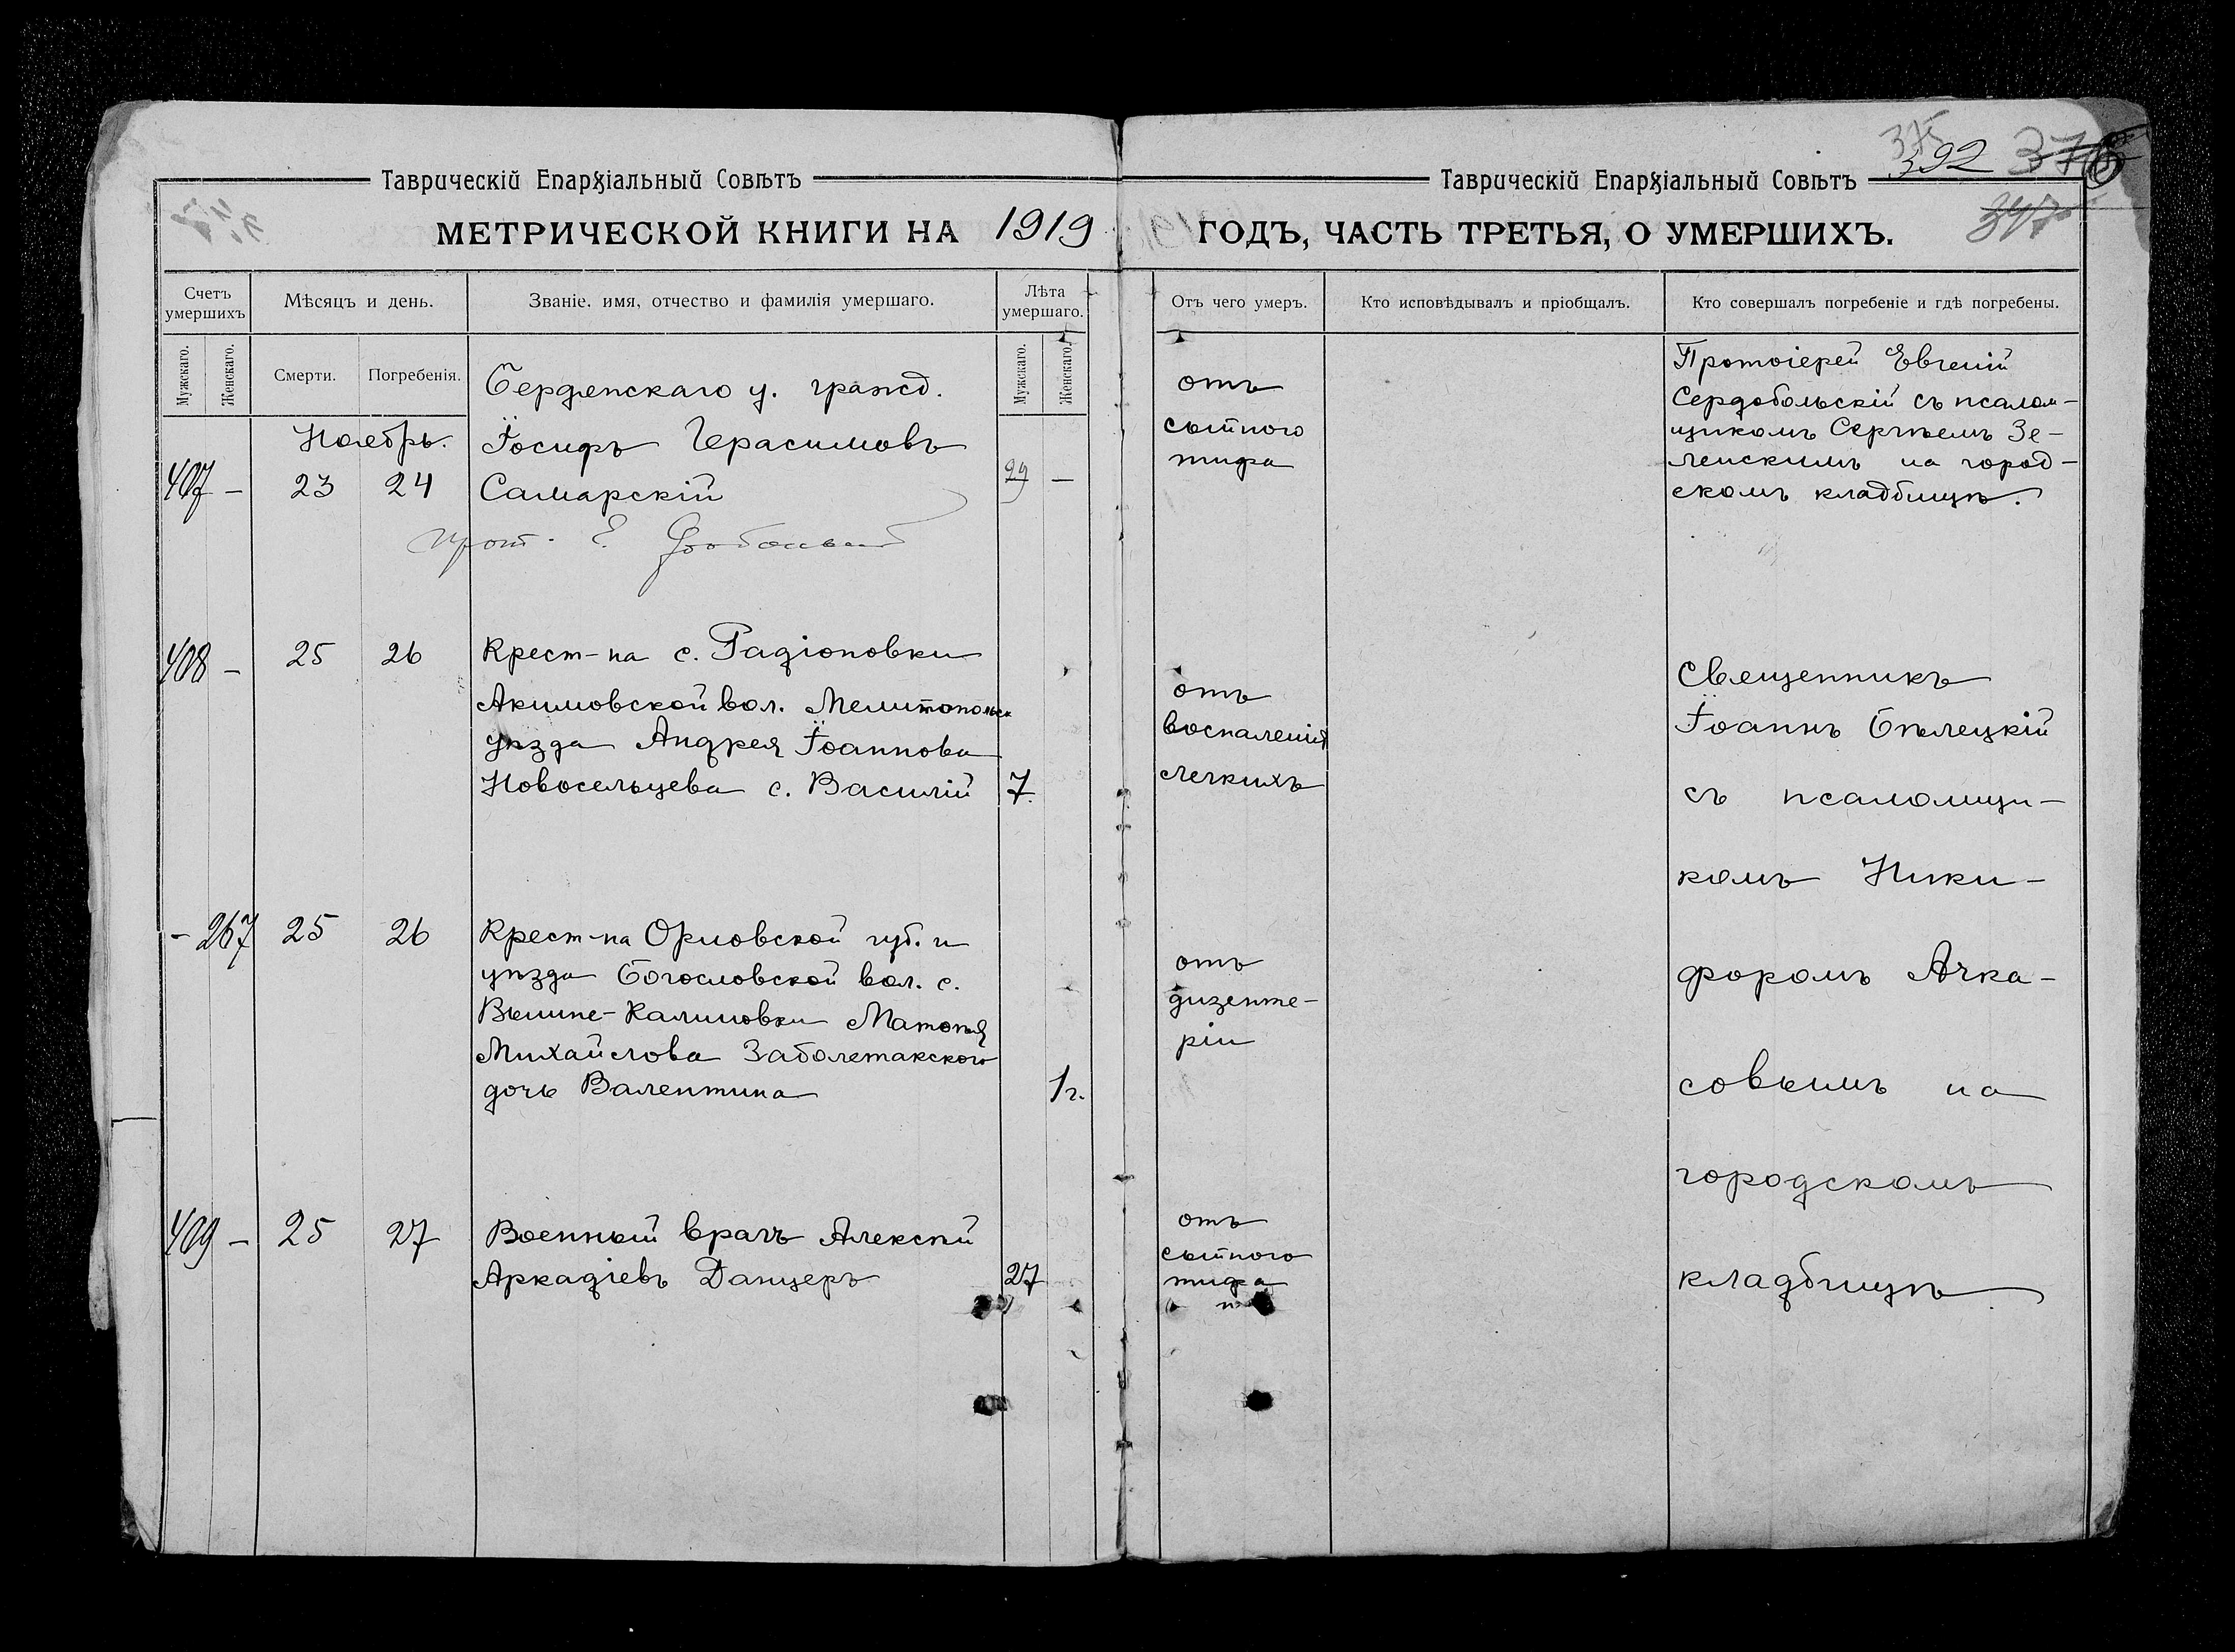 Таврическій Епархіальный Совѣтъ
МЕТРИЧЕСКОЙ КНИГИ НА 1919
Счетъ умершихъ
Мѣсяцъ и день.
Званіе, имя, отчество и фамилія умершаго.
Лѣта умершаго.
Мужскаго.
Женскаго.
Смерти.
Погребенія.
Мужскаго.
Женскаго.
Ноябрь.
407 – 23 24
Бердянскаго у. гражд.
Іосифъ Герасимовъ
Самарскій
29 –
прот. Е.
408 – 25 26
Крест-на с. Радіоновки
Акимовской вол. Мелитопольск
уѣзда Андрея Іоаннова
Новосельцева с. Василій 7.
– 267 25 26
Крест-на Орловской губ. и
уѣзда Богословской вол. с.
Выше-Калиновки
Михайлова
дочь Валентина 1 г.
409 – 25 27
Военный врачъ Алексѣй
Аркадіевъ Данцеръ 27
Таврическій Епархіальный Совѣтъ
375
392
376
347
ГОДЪ, ЧАСТЬ ТРЕТЬЯ, О УМЕРШИХЪ.
Отъ чего умеръ.
Кто исповѣдывалъ и пріобщалъ.
Кто совершалъ погребеніе и гдѣ погребены.
отъ
сыпного
тифа
Протоіерей Евгеній
Сердобольскій съ псалом-
щикомъ Сергѣемъ Зе-
ленскимъ на город-
скомъ кладбищѣ.
отъ
воспаленія
легкихъ
отъ
дизенте-
ріи
отъ
сыпного
тифа
Священникъ
Іоаннъ Бѣлецкій
съ псаломщи-
комъ Ники-
форомъ Ачка-
совымъ на
городскомъ
кладбищѣ